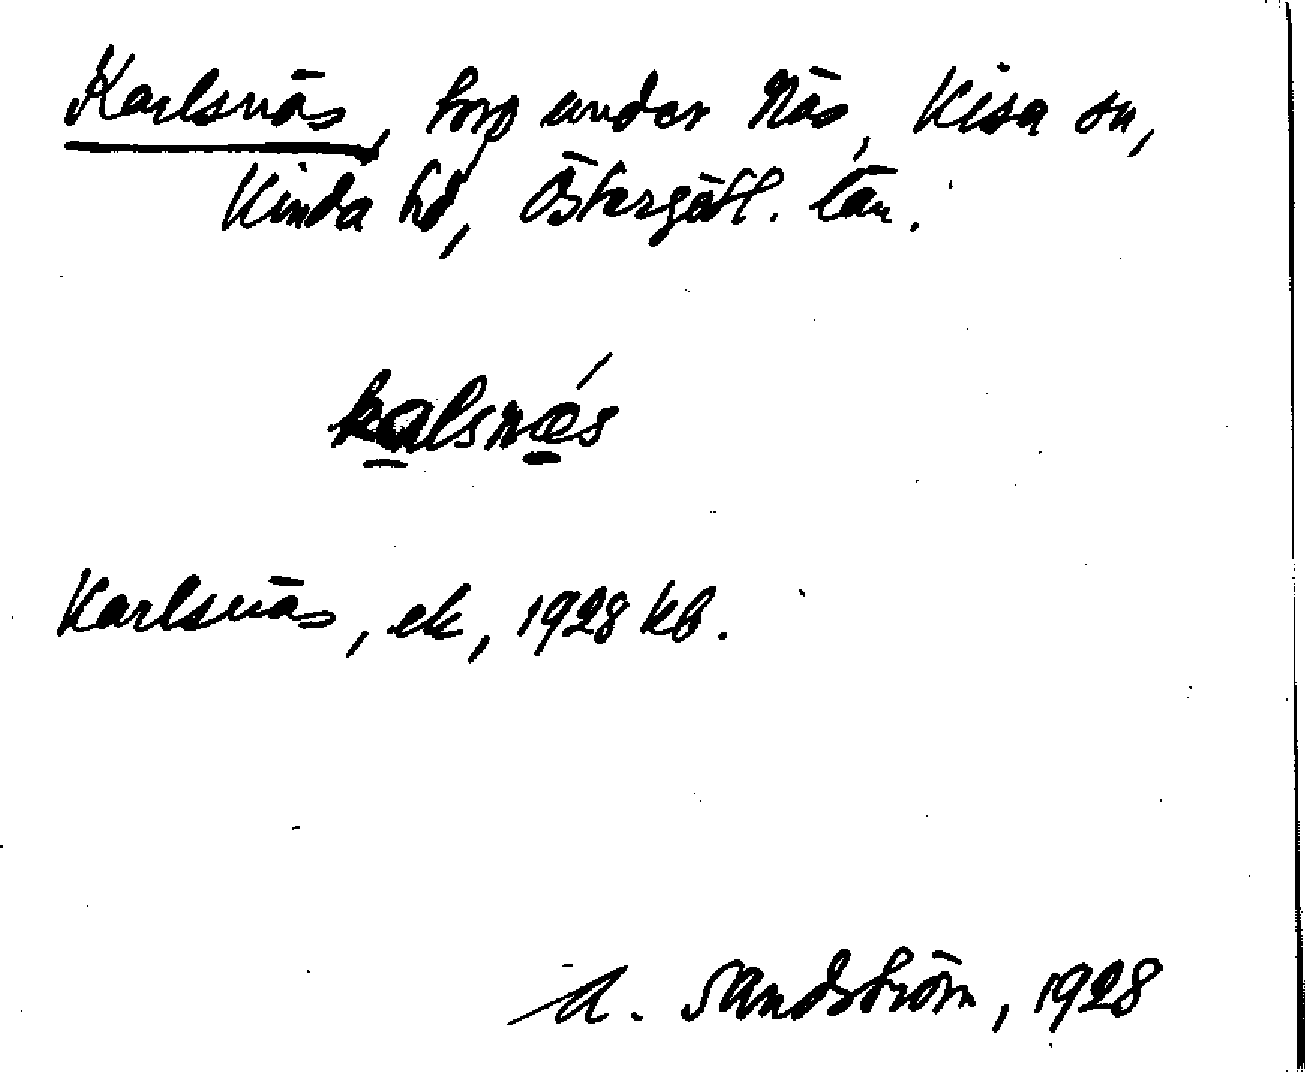 Karlsnäs, torp under Näs, Kisa sn,
Kinda hd, Östergötl. län.
kalsnǽs
Karlsnäs, ek, 1928 kb.
A. Sandström, 1928